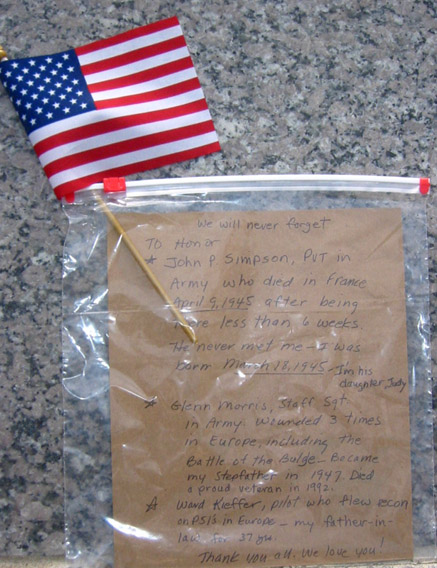 We will never forget
To Honor
* John P. Simpson, PVT in
Army who died in France
April 9, 1945 after being
there less than 6 weeks.
He never met me - I was
born March 18, 1945 - I'm his
daughter Judy
* Glenn Morris, Staff Sgt
in Army. Wounded 3 times
in Europe, including the
Battle of the Bulge - Became
my Stepfather in 1947. Died
a proud veteran in 1992.
* Ward Kieffer, pilot who flew recon
on P51s in Europe - my father-in-
law for 37 yrs.
Thank you all. We love you!